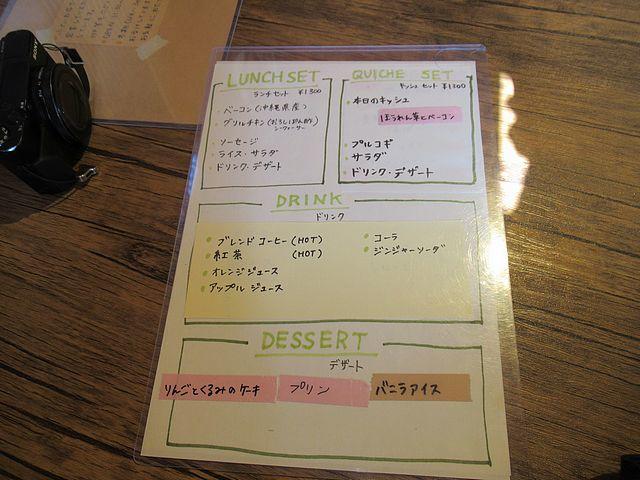 SONY
LUNCH SET
ランチセット ¥1300
・ベーコン(沖縄県産)
・グリルチキン(おろしぽん酢)
シークヮーサー
・ソーセージ
・ライス・サラダ
・ドリンク・デザート
QUICHE SET
キッシュセット ¥1300
・本日のキッシュ
ほうれん草とベーコン
・プルコギ
・サラダ
・ドリンク・デザート
DRINK
ドリンク
・ブレンドコーヒー(HOT)
・紅茶 (HOT)
・オレンジジュース
・アップルジュース
・コーラ
・ジンジャーソーダ
DESSERT
デザート
りんごとくるみのケーキ
プリン
バニラアイス